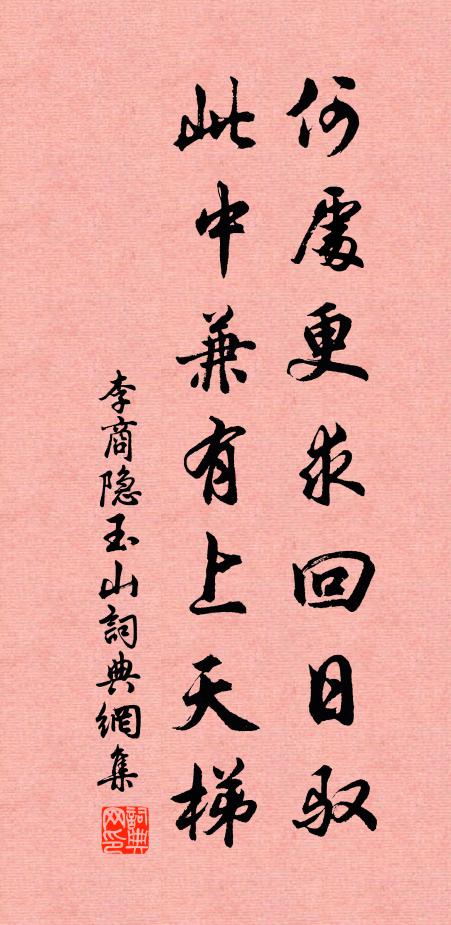 何處更求回日驭
此中兼有上天梯
李商隐玉山詞典網集
詞典网印